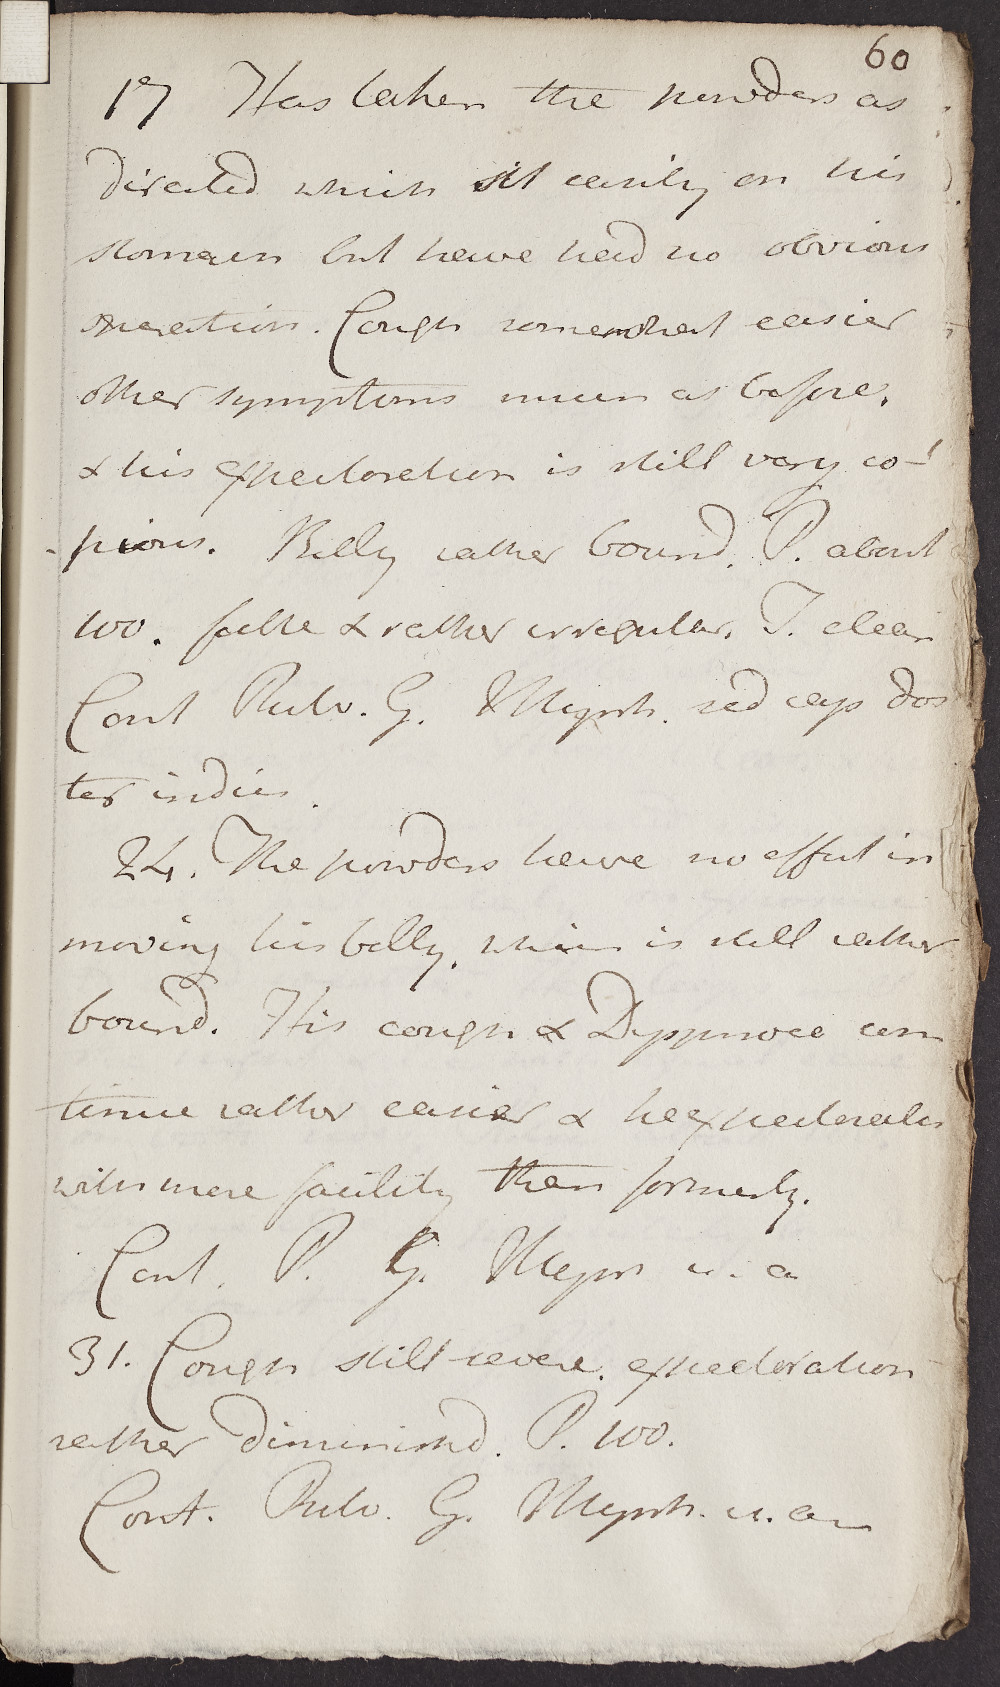 60
17 Has taken the powders as
directed which sit easily on his
stomach but have had no obvious
operation. Cough somewhat easier
other symptoms much as before,
& his expectoration is still very co-
-pious. Belly rather bound. P. about
100. feeble & rather irregular. T. clean
Cont Pulv. G. Myrrh. sed cap dos
ter indies.
24. The powders have no effect in
moving his belly, which is still rather
bound. His cough & Dyspnoea con
tinue rather easier & he expectorates
with more facility than formerly.
Cont. P. G. Myrrh u. a
31. Cough still severe. expectoration
rather diminishd. P. 100.
Cont. Pulv. G. Myrrh. u. a